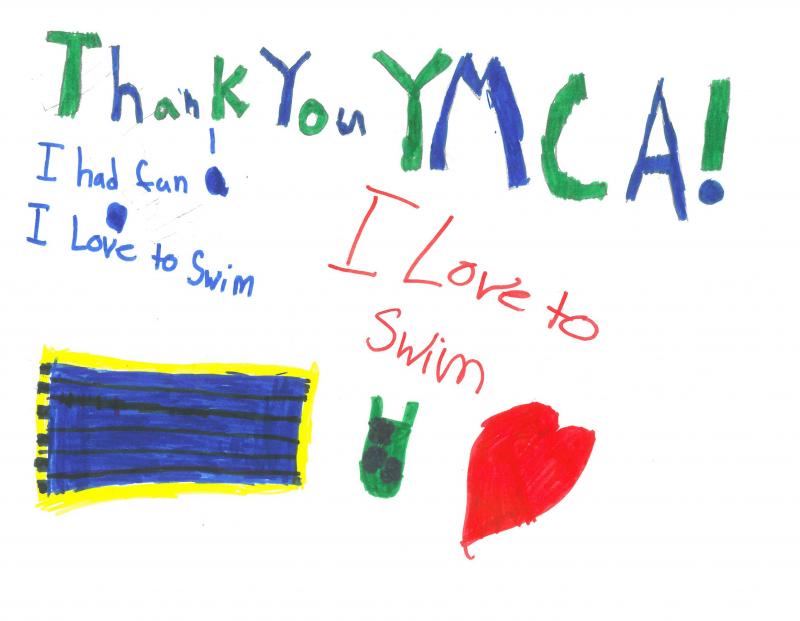 Thank You YMCA!
I had fun!
I Love to Swim
I Love to
Swim